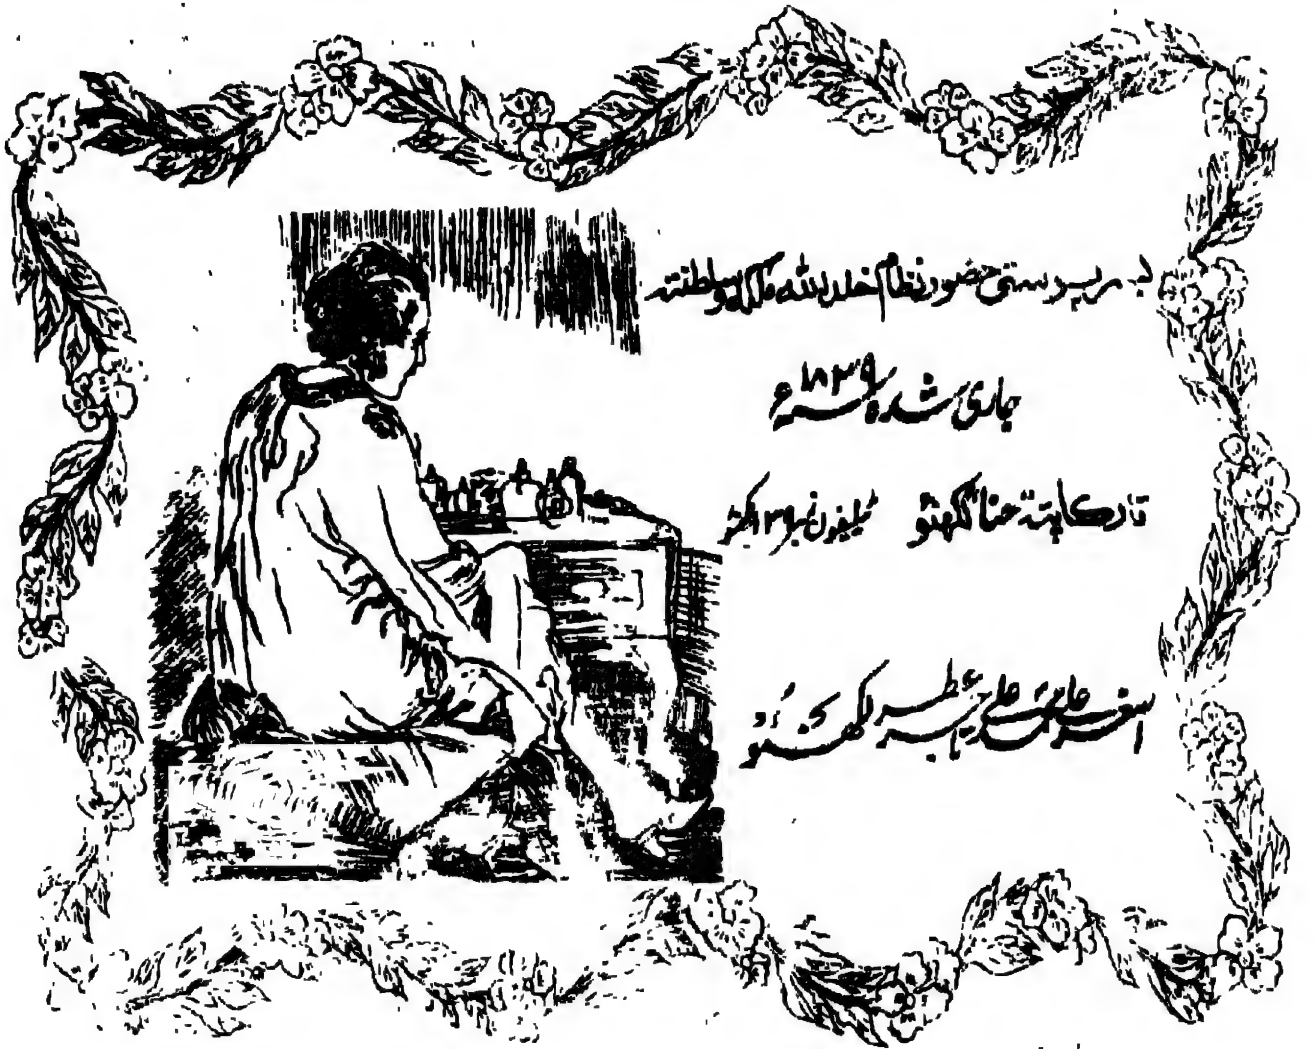 بہ سرپرستی حضور نظام خلد اللہ ملکہ و سلطنتہ
جاری شدہ ۱۸۳۹ سنہ ء
تار کا پتہ حنا لکھنؤ ٹیلیفون نمبر ۱۳۹ لکھنؤ
اصغر علی محمد علی تاجر عطر لکھنؤ